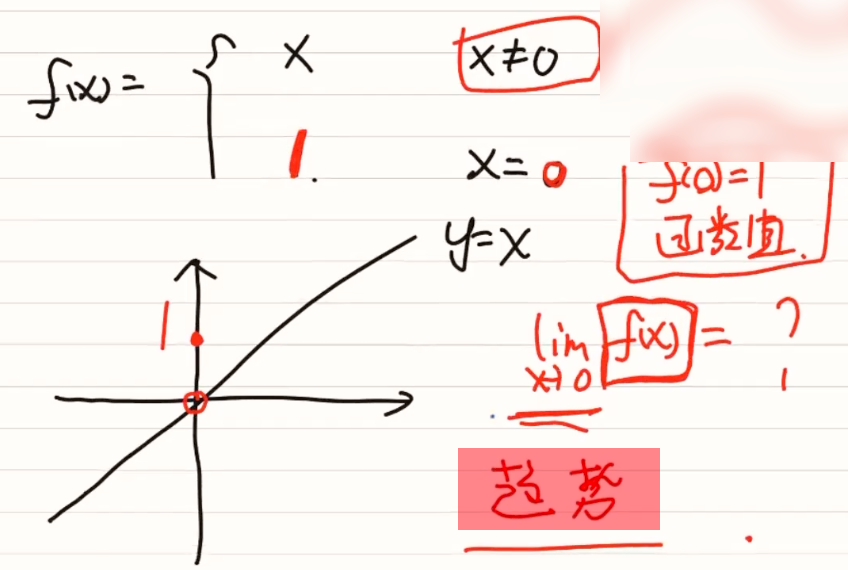 f(x)= { x x≠0
1. x=0
f(0)=1
函数值.
y=x
1
lim f(x) = ?
x→0
趋势